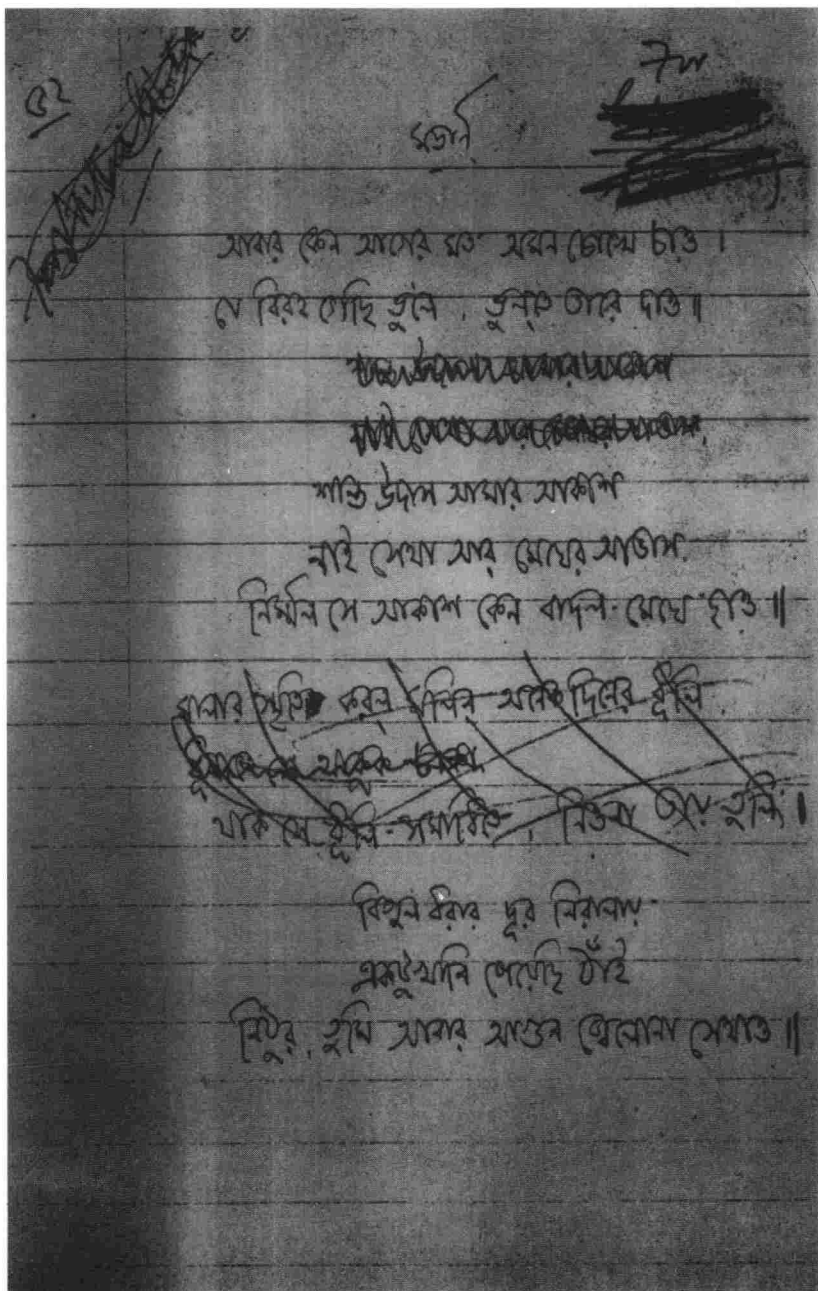 ৩২
মডার্ন
আবার কেন আগের মত অমন চোখে চাও।
যে বিরহ গেছি ভুলে, ভুলতে তারে দাও॥
শান্ত উদাস আমার আকাশ
নাই সেথা আর মেঘের আভাস,
নির্মল সে আকাশ কেন বাদল-মেঘে ছাও॥
মালার স্মৃতি করল মলিন অনেক দিনের ধূলি
থাক সে ধূলি-সমাধিতে, নিওনা তুলি।
বিপুল ধরার দূর নিরালায়
একটুখানি পেয়েছি ঠাঁই
নিঠুর, তুমি আবার আগুন জ্বেলোনা সেথাও॥